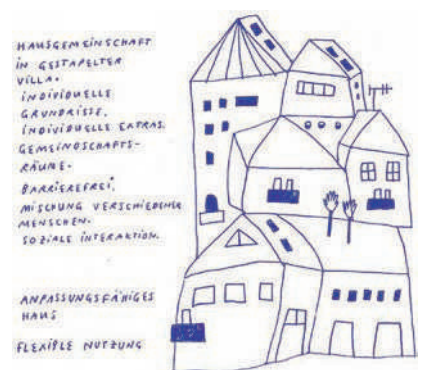 HAUSGEMEINSCHAFT
IN GESTAPELTER
VILLA.
INDIVIDUELLE
GRUNDRISSE.
INDIVIDUELLE EXTRAS.
GEMEINDSCHAFTS-
RÄUME.
BARRIEREFREI.
MISCHUNG VERSCHIEDENER
MENSCHEN.
SOZIALE INTERAKTION.
ANPASSUNGSFÄHIGES
HAUS
FLEXIBLE NUTZUNG